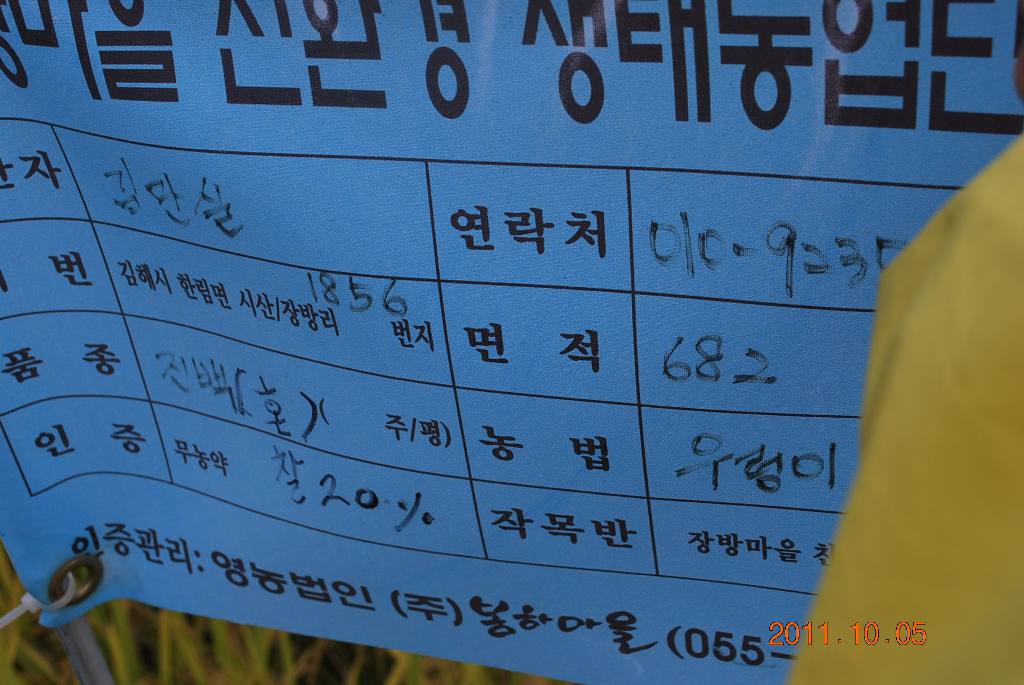 방마을 친환경 생태농업단
산자 김만실 연락처 010-9230
번 김해시 한림면 시산/장방리 1856 번지 면 적 682
품 종 진백(혼)( 주/평) 농 법 우렁이
인 증 무농약 찰20% 작목반 장방마을 친
인증관리: 영농법인 (주)봉하마을 (055-
2011.10.05